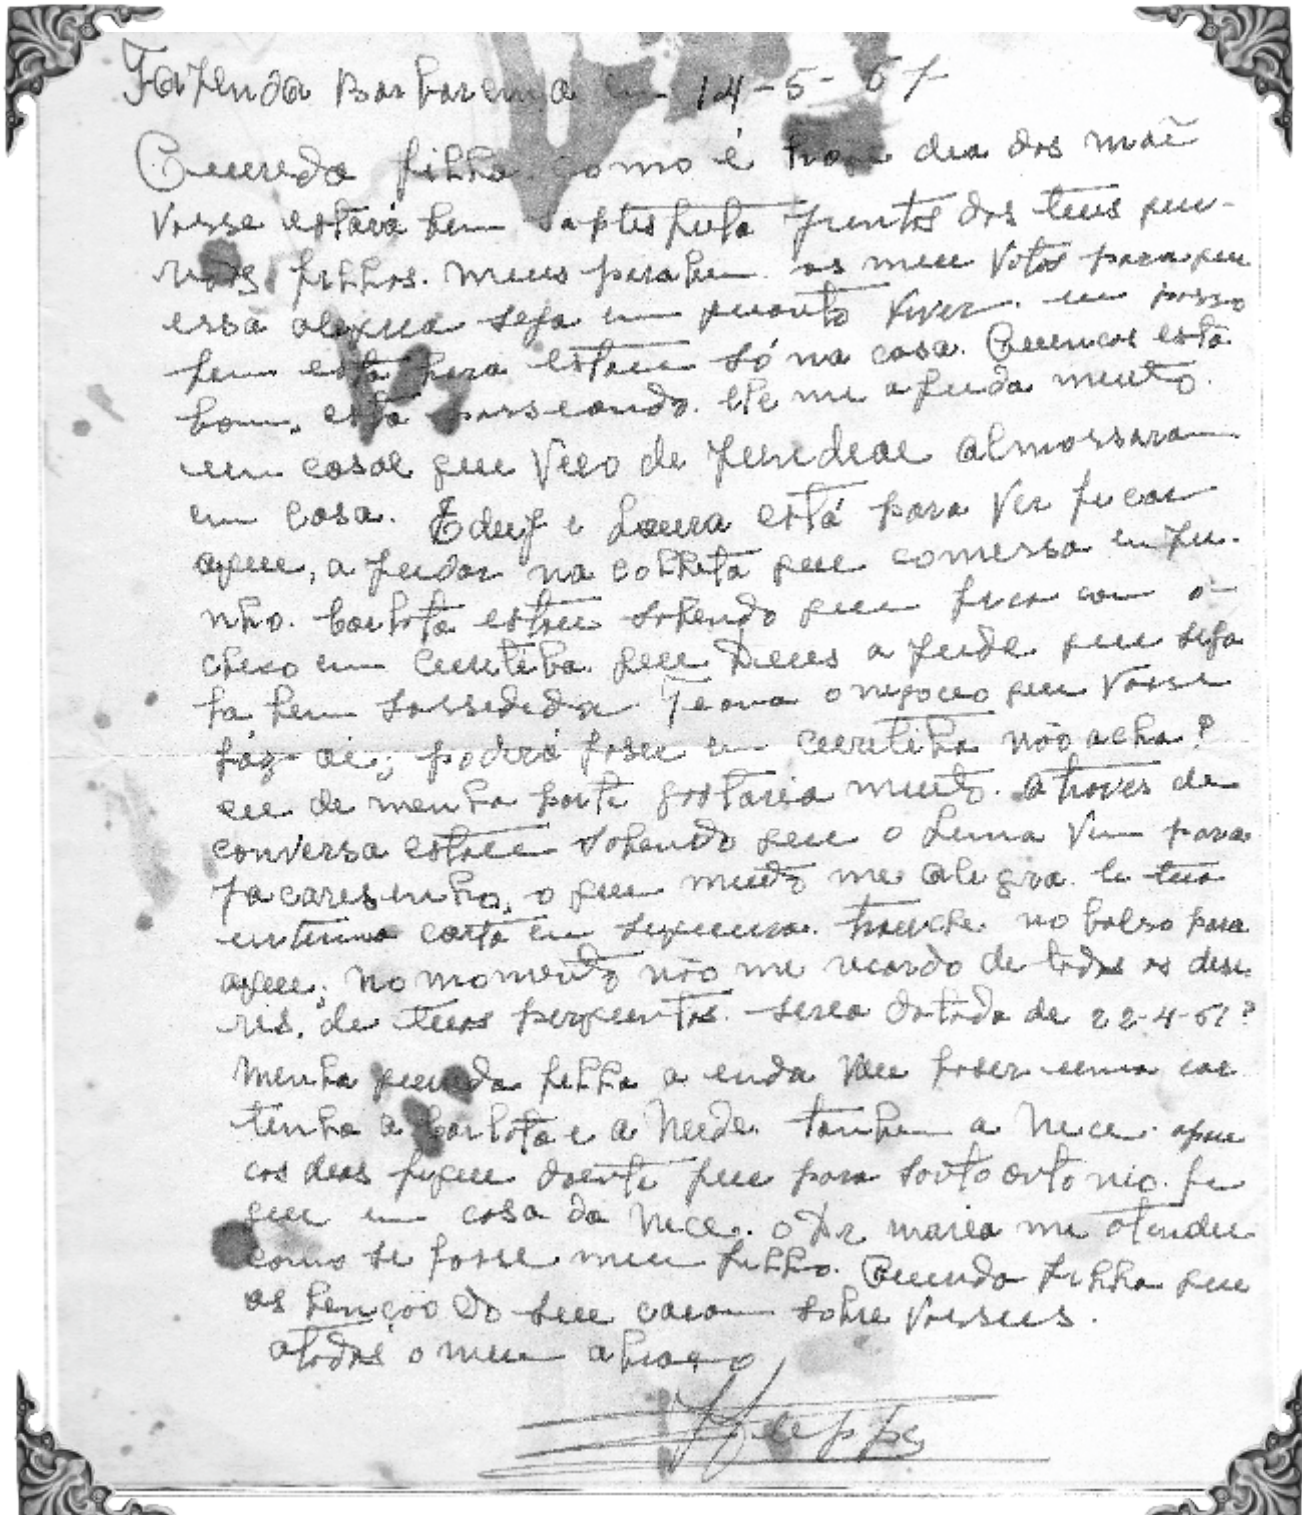 Fazenda Barbarena em 14-5-67
Querida filha como é hoje dia das mãe
Vosse estará bem saptisfeita juntos dos teus que-
ridos filhos. meus parabem os meu Votos para que
essa alegria seja em quanto Viver. eu passo
bem esta hora estou só na casa. esta
bom, está passeando. ele me ajuda muito.
um casal que Veio de almossaram
em casa. e Laura está para Vir ficar
aqui, ajudar na colheita que comessa em ju-
nho. Carlota estou sabendo que fica com o
chico em Curitiba. que Deus ajude que seja
la bem sossedida o negocio que Vosse
fáz ai; poderá faser em Curitiba não acha?
eu de minha parte gostaria muito. atraves de
conversa estou sabendo que o Luna Vem para
jacaresinho, o que muito me alegra. la tua
untima carta em trouche no bolso para
aqui; no momento não me recordo de todos os dise
res, de tuas perguntas. seria datada de 22-4-67?
minha querida filha a enda Vou faser uma car
tinha a Carlota e a Neide. tanbem a Nice. apou
cos dias fiquei doente fui para santo antonio. fi
quei em casa da Nice. o Dr mario me atendeu
como se fosse meu filho. Querida filha que
as bençoo do seu caiam sobre Vosseis.
atodos o meu abraço